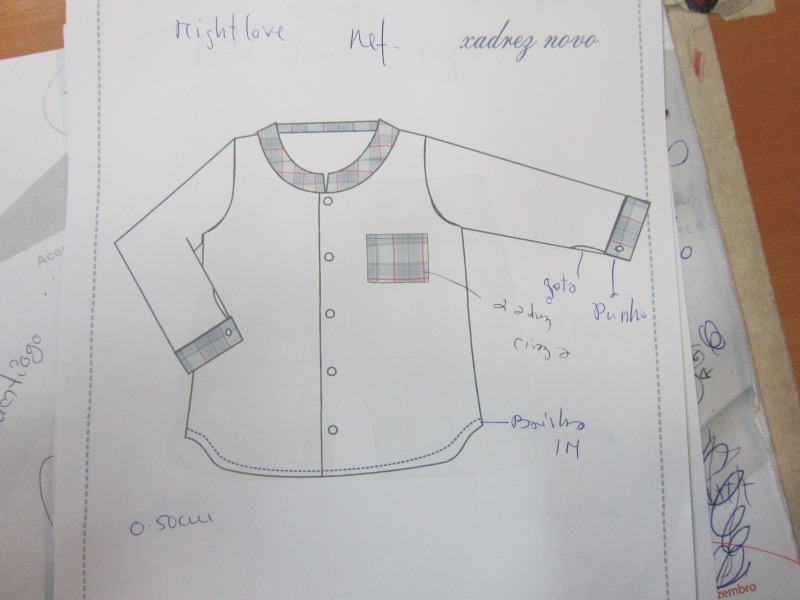 rightlove Ref. xadrez novo
gota
Punho
xadrez
cinza
Bainha
1M
0.50cm
Ace
zembro